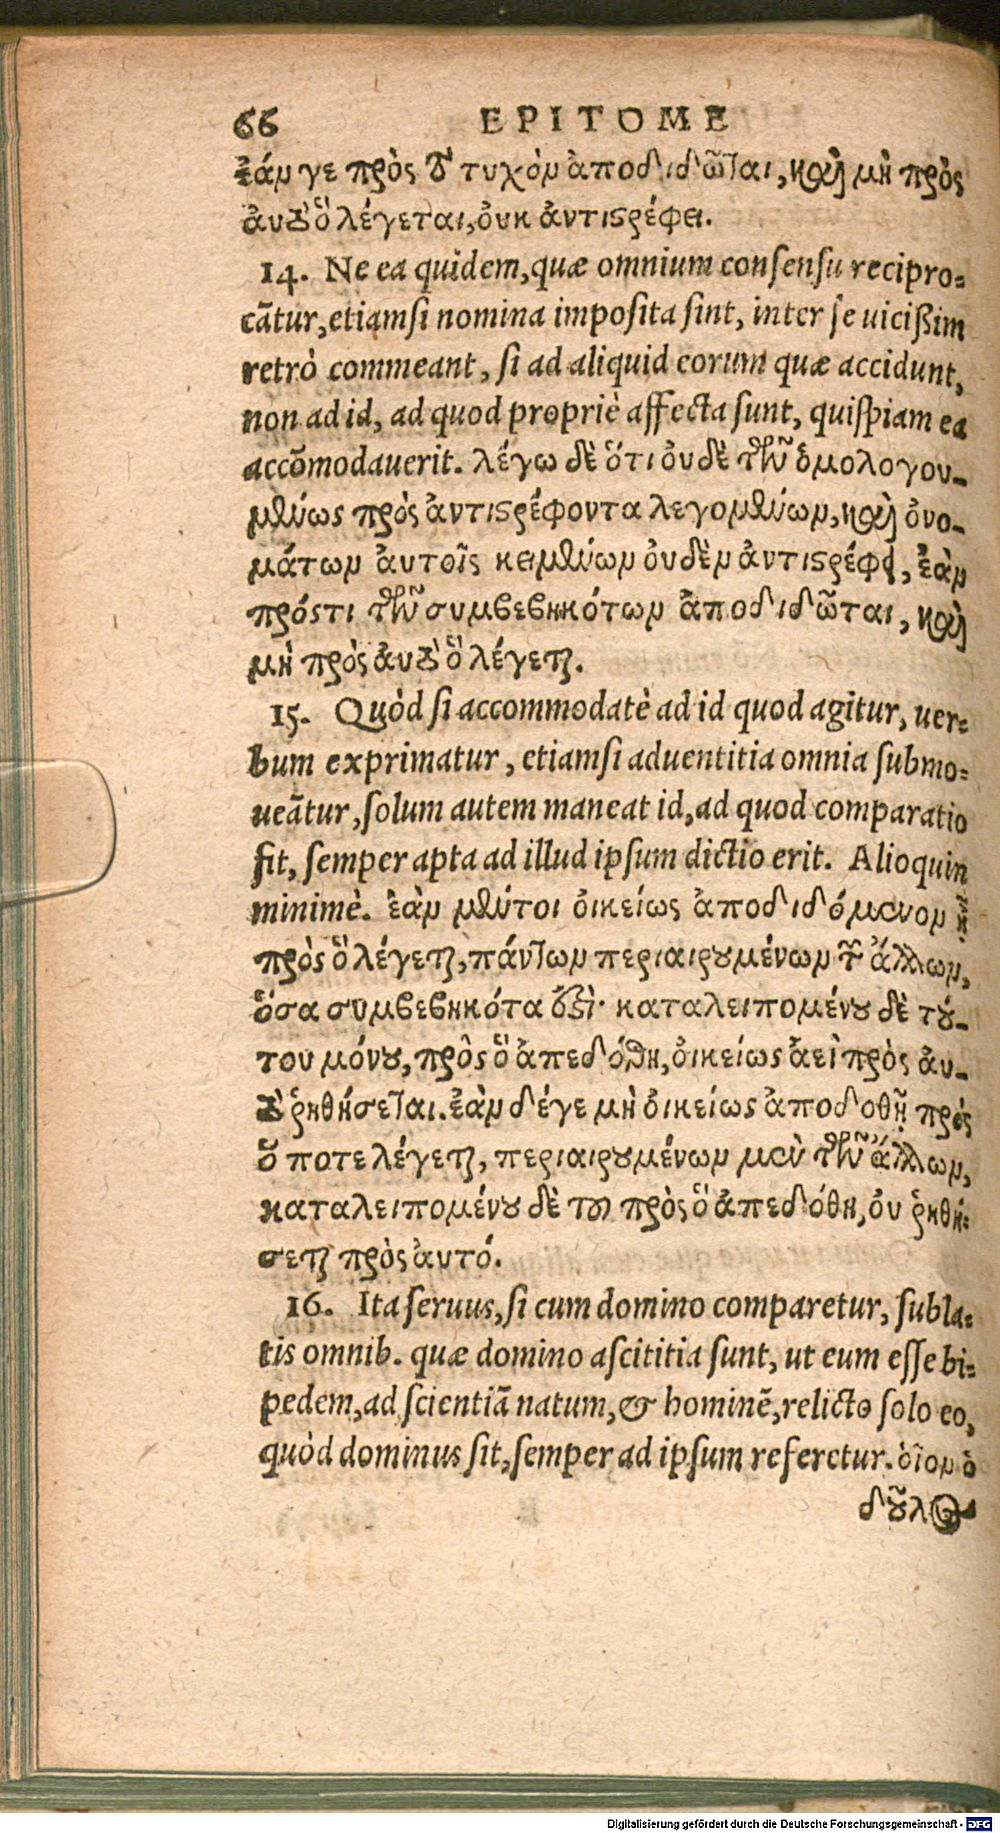 66 EPITOME
ἐάν γε πρὸς τὸ τυχὸν ἀποδιδῶται, καὶ μὴ πρὸς
ἀυτὸ ὃ λέγεται, ὀυκ ἀντιστρέφει.
14. Ne ea quidem, quæ omnium consensu recipro-
cātur, etiamsi nomina imposita sint, inter se uicißim
retrò commeant, si ad aliquid eorum quæ accidunt,
non ad id, ad quod propriè affecta sunt, quispiam ea
accōmodauerit. λέγω δὲ ὅτι ὀυδὲ τῶν ὁμολογου-
μένως πρὸς ἀντιστρέφοντα λεγομένων, καὶ ὀνο-
μάτων ἀυτοῖς κειμένων ὀυδὲν ἀντιστρέφει, ἐὰν
πρόστι τῶν συμβεβηκότων ἀποδιδῶται, καὶ
μὴ πρὸς ἀυτὸ ὃ λέγεται.
15. Quòd si accommodatè ad id quod agitur, uer-
bum exprimatur, etiamsi aduentitia omnia submo-
ueātur, solum autem maneat id, ad quod comparatio
fit, semper apta ad illud ipsum dictio erit. Alioquin
minimè. ἐὰν μέντοι ὀικείως ἀποδιδόμενον ᾖ
πρὸς ὃ λέγεται, πάντων περιαιρουμένων τῶν ἄλλων,
ὅσα συμβεβηκότα ἐστί· καταλειπομένου δὲ τού-
του μόνου, πρὸς ὃ ἀπεδόθη, ὀικείως ἀεὶ πρὸς ἀυ-
τὸ ῥηθήσεται. ἐὰν δέγε μὴ ὀικείως ἀποδοθῇ πρὸς
ὅ ποτε λέγεται, περιαιρουμένων μὲν τῶν ἄλλων,
καταλειπομένου δὲ τοῦ πρὸς ὃ ἀπεδόθη, ὀυ ῥηθή-
σεται πρὸς ἀυτό.
16. Ita seruus, si cum domino comparetur, subla-
tis omnib. quæ domino ascititia sunt, ut eum esse bi-
pedem, ad scientiā natum, & hominē, relicto solo eo,
quòd dominus sit, semper ad ipsum referetur. ὁῖον ὁ
δοῦλος
Digitalisierung gefördert durch die Deutsche Forschungsgemeinschaft - DFG